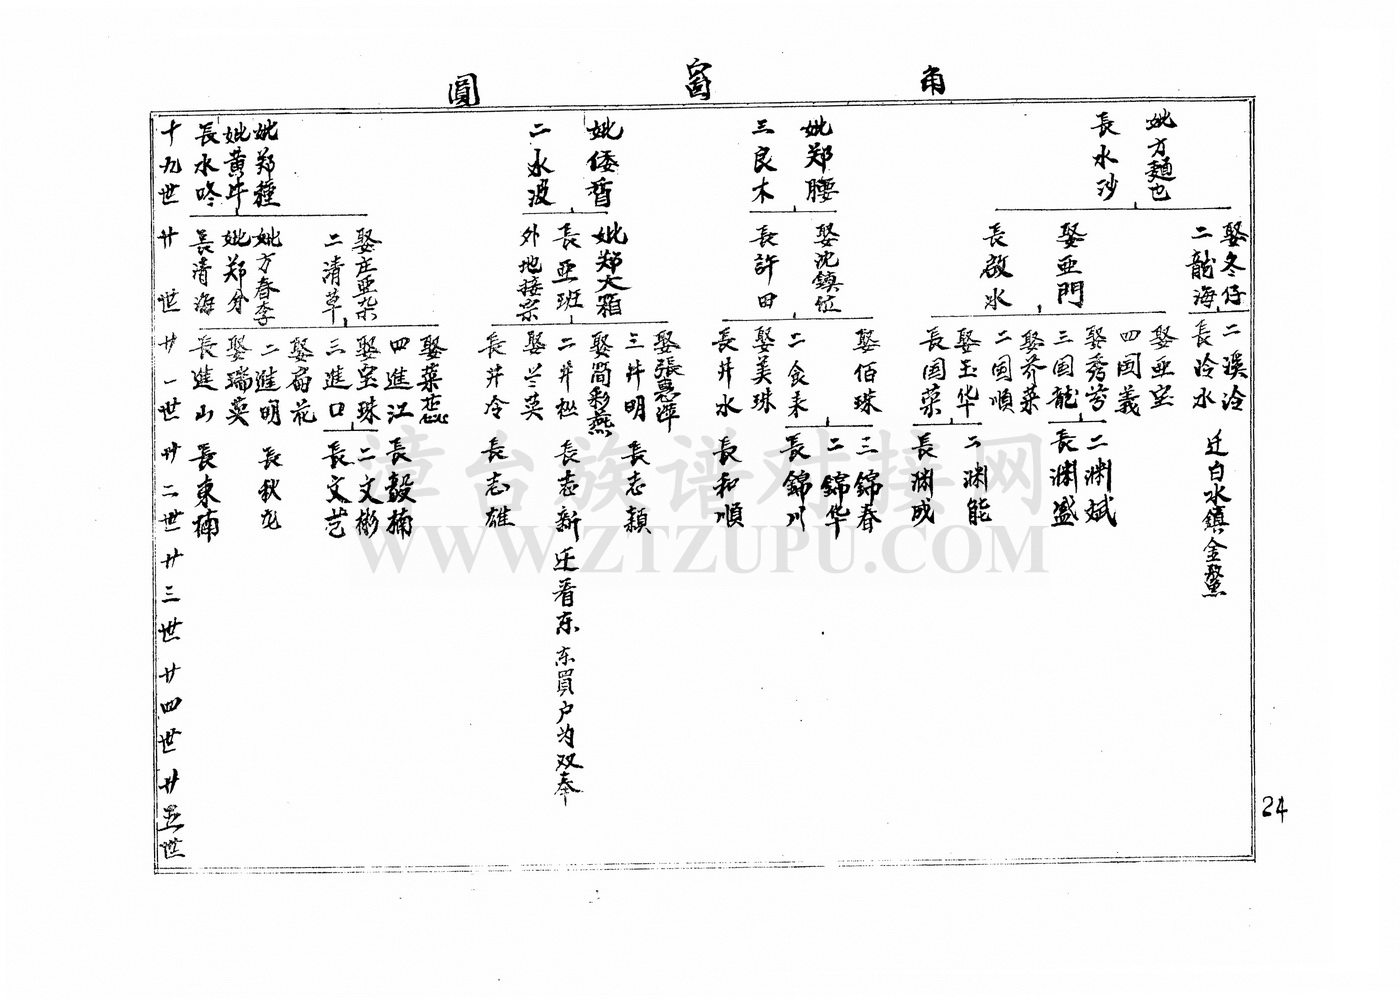 圓 窗 角
十九世
長水咚
妣黄牛
妣郑種
二水波
妣倭旾
三良木
妣郑腰
長水沙
妣方麵也
廿世
長清海
妣郑分
妣方春李
二清草
娶庄亜杂
外地接宗
長亜班
妣郑大箱
長許田
娶沈鎮位
長啟水
娶亜門
二龍海
娶冬仔
廿一世
長進山
娶瑞英
二進明
娶扁花
三進口
娶宝珠
四進江
娶葉蕊
長井冷
娶兰英
二井松
娶简彩燕
三井明
娶張惠萍
長井水
娶美珠
二食来
娶佰珠
長国荣
娶玉华
二国順
娶乔菜
三国龍
娶秀芳
四国義
娶亜宝
長冷水
二溪冷
廿二世
長東楠
長秋龙
長文艺
二文彬
長毅楠
長志雄
長志新
迁看东
东買户为双奉
長志颖
長和順
長錦川
二錦华
三錦春
長渊成
二渊能
長渊盛
二渊斌
迁白水鎮金鰲
廿三世
廿四世
廿五世
24
漳台族谱对接网
WWW.ZTZUPU.COM